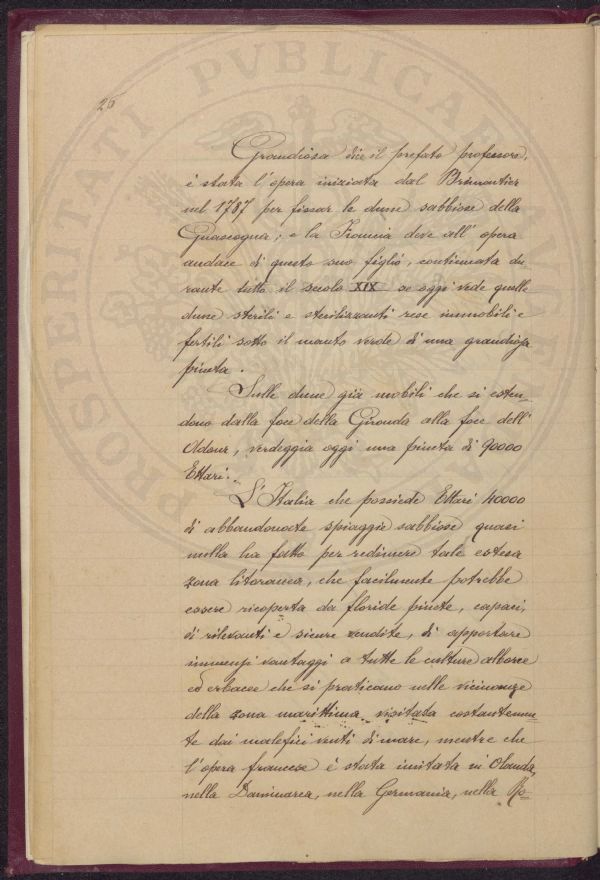 26
PROSPERITATI PVBLICAE
Grandiosa dice il prefato professore,
è stata l'opera iniziata dal Brémontier
nel 1787 per fissar le dune sabbiose della
Guascogna; e la Francia deve all'opera
audace di questo suo figlio, continuata du
rante tutto il secolo XIX se oggi vede quelle
dune sterili e sterilizzanti rese immobili e
fertili sotto il manto verde di una grandiosa
pineta.
Sulle dune già mobili che si esten-
dono dalla foce della Gironda alla foce dell'
Adour, verdeggia oggi una pineta di 90000
Ettari.
L'Italia che possiede Ettari 40000
di abbandonate spiaggie sabbiose quasi
nulla ha fatto per redimere tale estesa
zona litoranea, che facilmente potrebbe
essere ricoperta da floride pinete, capaci,
di rilevanti e sicure rendite, di apportare
immensi vantaggi a tutte le culture alboree
ed erbacee che si praticano nelle vicinanze
della zona marittima visitata costantemen-
te dai malefici venti di mare, mentre che
l'opera francese è stata imitata in Olanda,
nella Danimarca, nella Germania, nella Ro-